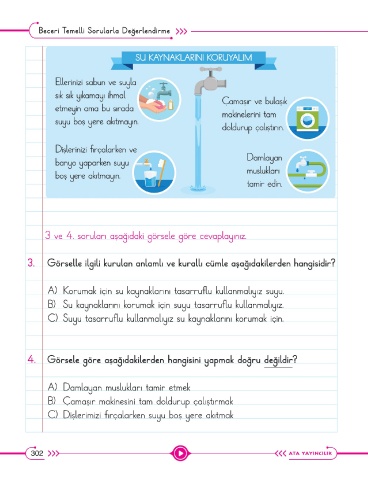 Beceri Temelli Sorularla Değerlendirme
SU KAYNAKLARINI KORUYALIM
Ellerinizi sabun ve suyla
sık sık yıkamayı ihmal
etmeyin ama bu sırada
suyu boş yere akıtmayın.
Çamaşır ve bulaşık
makinelerini tam
doldurup çalıştırın.
Dişlerinizi fırçalarken ve
banyo yaparken suyu
boş yere akıtmayın.
Damlayan
muslukları
tamir edin.
3 ve 4. soruları aşağıdaki görsele göre cevaplayınız.
3. Görselle ilgili kurulan anlamlı ve kurallı cümle aşağıdakilerden hangisidir?
A) Korumak için su kaynaklarını tasarruflu kullanmalıyız suyu.
B) Su kaynaklarını korumak için suyu tasarruflu kullanmalıyız.
C) Suyu tasarruflu kullanmalıyız su kaynaklarını korumak için.
4. Görsele göre aşağıdakilerden hangisini yapmak doğru değildir?
A) Damlayan muslukları tamir etmek
B) Çamaşır makinesini tam doldurup çalıştırmak
C) Dişlerimizi fırçalarken suyu boş yere akıtmak
302
ATA YAYINCILIK